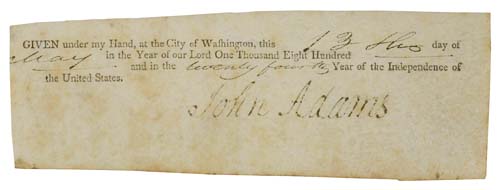 GIVEN under my Hand, at the City of Washington, this 13th day of
May in the Year of our Lord One Thousand Eight Hundred
and in the twenty fourth Year of the Independence of
the United States.
John Adams